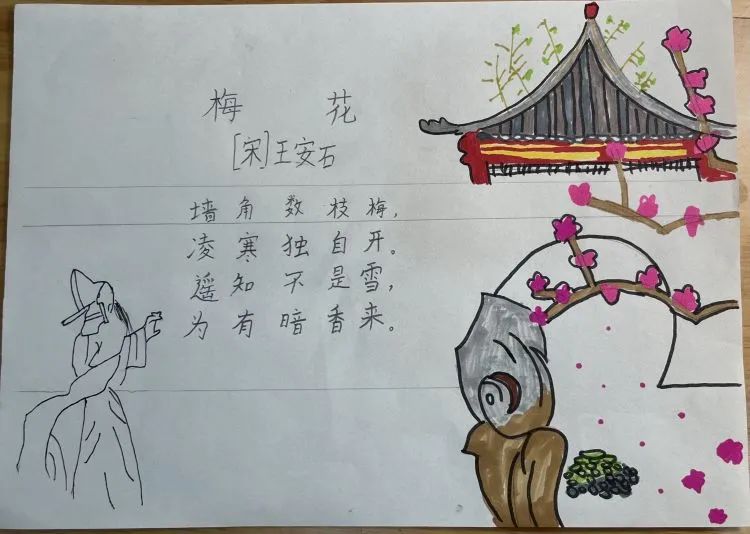 梅 花
[宋]王安石
墙角数枝梅,
凌寒独自开。
遥知不是雪,
为有暗香来。